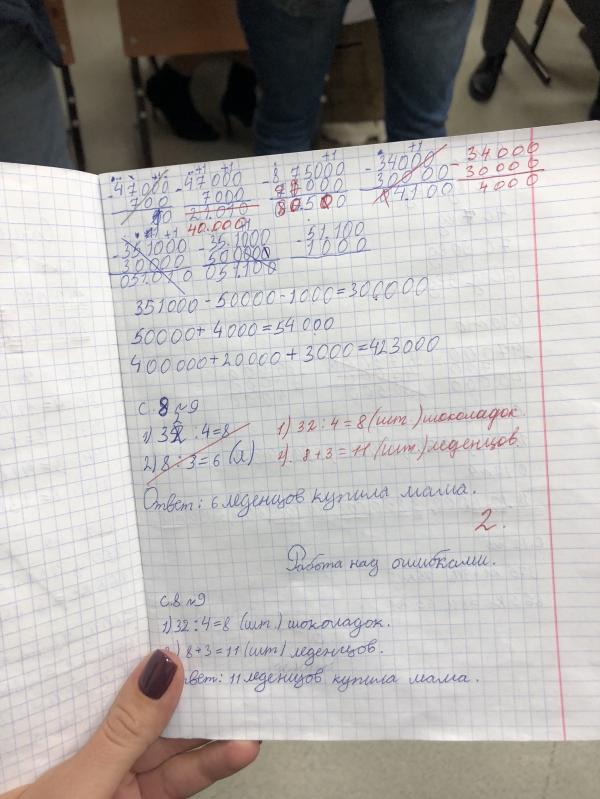 47000 47000 875000 34000 34000
700 7000 30000 30000
40.000 4000
351000 351000 51.100
30000 50000 1000
051010 051100
351000 - 50000 - 1000 = 300000
50000 + 4000 = 54000
400000 + 20000 + 3000 = 423000
с. 8 №9
1) 32 : 4 = 8 1) 32 : 4 = 8 (шт.) шоколадок
2) 8 : 3 = 6 (л) 2). 8 + 3 = 11 (шт.) леденцов.
Ответ: 6 леденцов купила мама.
2.
Работа над ошибками.
с. 8 №9
1) 32 : 4 = 8 (шт.) шоколадок.
) 8 + 3 = 11 (шт) леденцов.
твет: 11 леденцов купила мама.